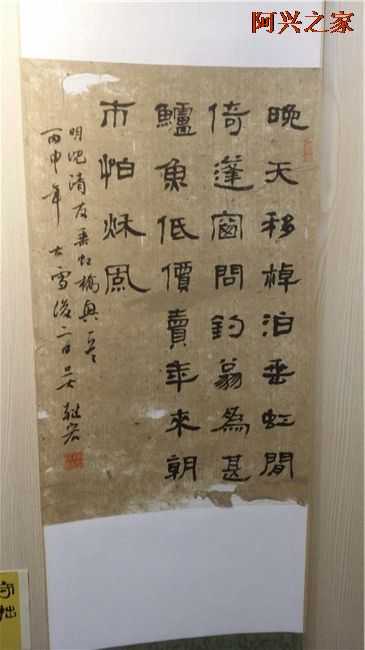 阿兴之家
晚天移棹泊垂虹閒
倚蓬窗問釣翁為甚
鱸魚低價賣年來朝
市怕秋風
明況清友垂虹橋
丙申年大雪後二日
守拙